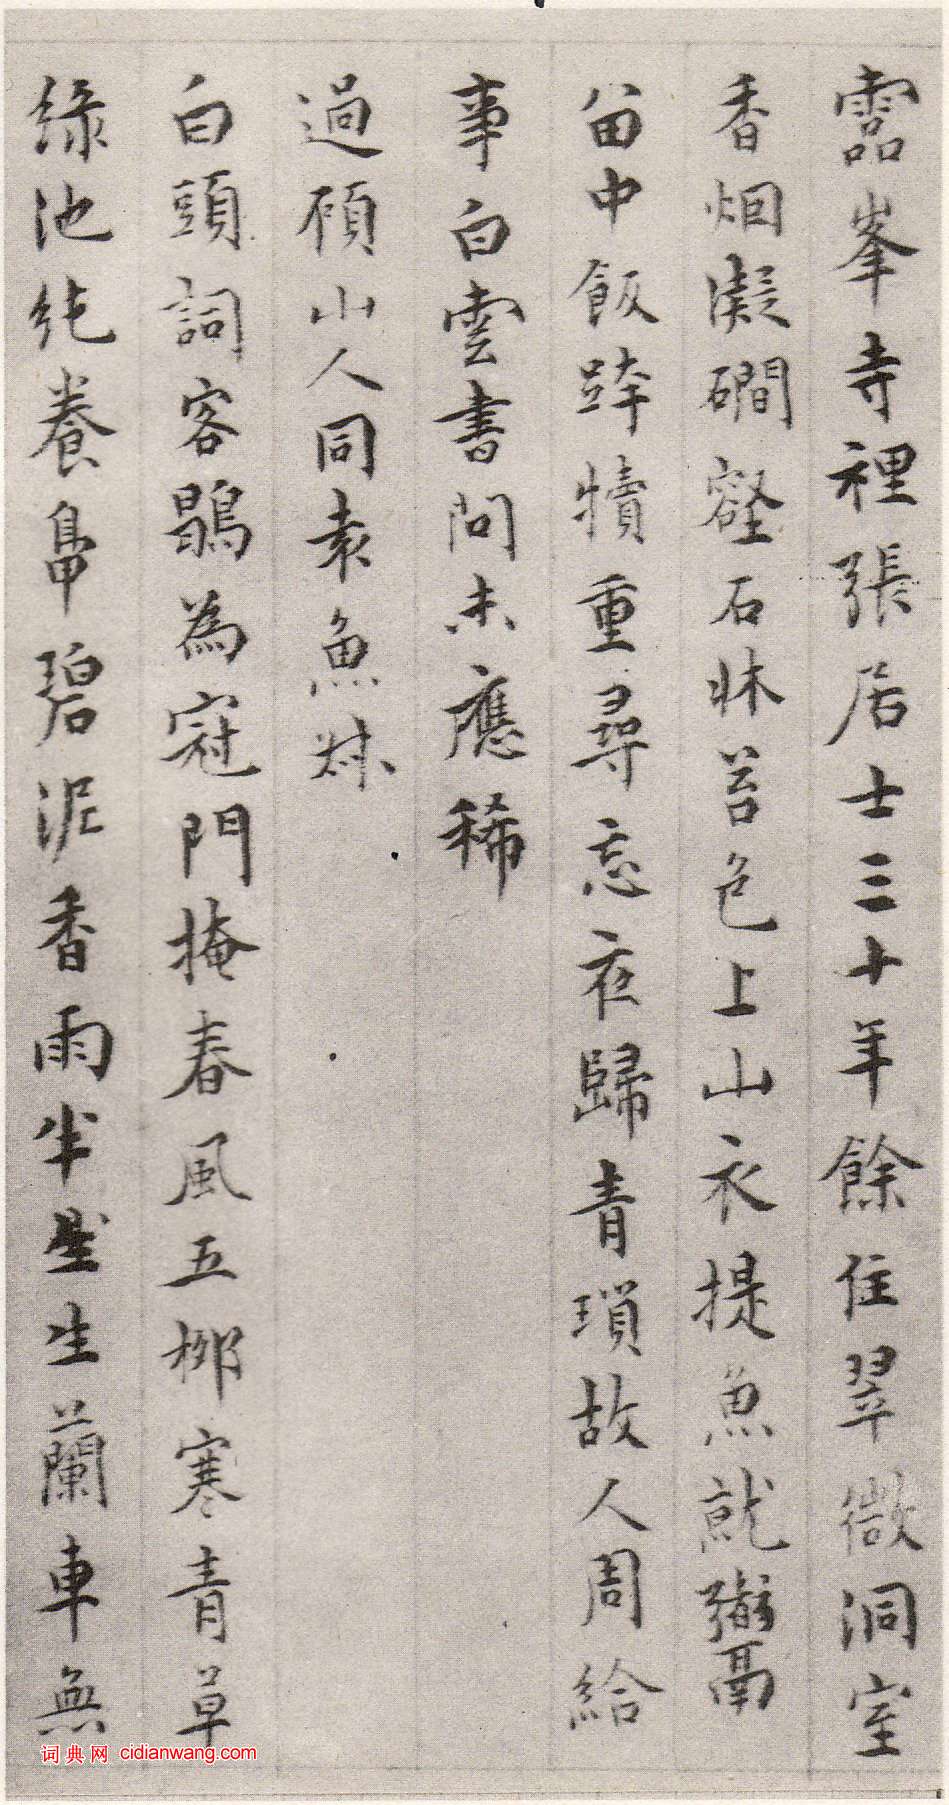 霛峯寺裡張居士三十年餘住翠微洞室
香烟凝磵壑石牀苔色上山衣提魚就鬻
畲中飯跨犢重尋忘夜歸青瑣故人周給
事白雲書問未應稀
過顧山人同袁魚
白頭詞客鶡為冠門掩春風五栁寒青草
綠池純養鳧碧泥香雨半生蘭車無
词典网 cidianwang.com